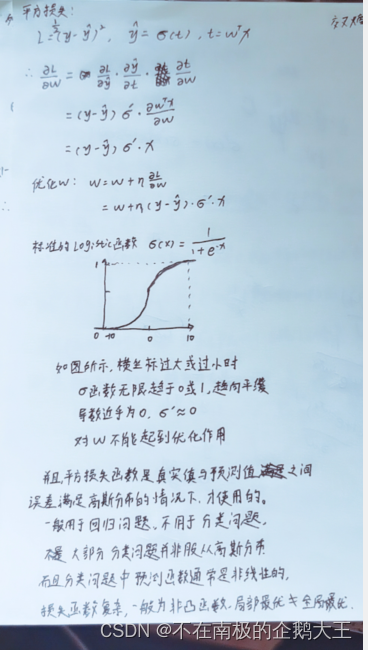 平方损失:
L = ½(y-ŷ)², ŷ = σ(t), t = wᵀx
∴ ∂L/∂w = ∂L/∂ŷ · ∂ŷ/∂t · ∂t/∂w
= (y-ŷ) σ' · ∂wᵀx/∂w
= (y-ŷ) σ' · x
优化w: w = w + η ∂L/∂w
= w + η (y-ŷ) · σ' · x
标准的Logistic函数 σ(x) = 1/(1+e⁻ˣ)
1
0 -10 0 10
如图所示,横坐标过大或过小时
σ函数无限趋于0或1,趋向平缓
导数近乎为0, σ' ≈ 0
对w不能起到优化作用
并且平方损失函数是真实值与预测值之间
误差满足高斯分布的情况下,才使用的。
一般用于回归问题,不用于分类问题,
大部分分类问题并非服从高斯分布
而且分类问题中预测函数通常是非线性的,
损失函数复杂,一般为非凸函数,局部最优 全局最优.
CSDN @不在南极的企鹅大王